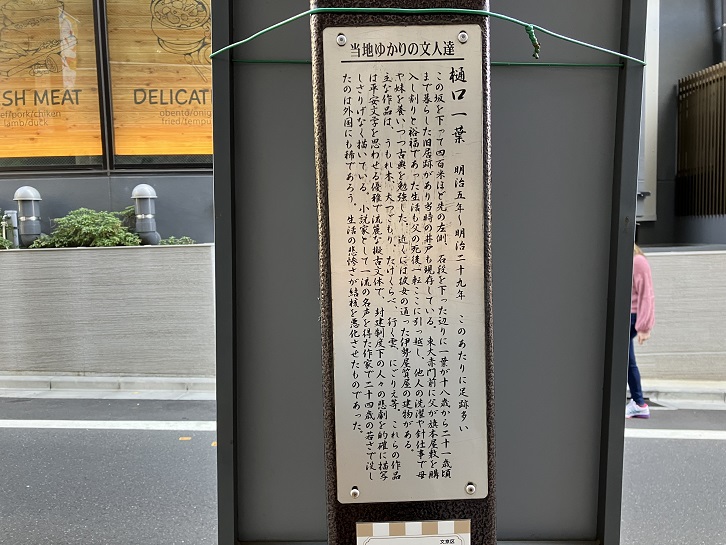 SH MEAT
ef/pork/chiken
lamb/duck
DELICAT
obento/onig
fried/tempu
当地ゆかりの文人達
樋口一葉　明治五年～明治二十九年　このあたりに足跡多い
この坂を下って四百米ほど先の左側、石段を下った辺りに一葉が十八歳から二十一歳頃
まで暮らした旧居跡があり当時の井戸も現存している。東大赤門前に父が旗本屋敷を購
入し割りと裕福であった生活も父の死後一転ここに引っ越し、他人の洗濯や針仕事で母
や妹を養いつつ古典を勉強した。近くには彼女の通った伊勢屋質屋の建物がある。
主な作品は、うもれ木、大つごもり、たけくらべ、行く雲、にごりえ等、これらの作品
は平安文学を思わせる優雅で流麗な擬古文体で、封建制度下の人々の悲劇を的確に描写
しさりげなく描いている。小説家として一流の名声を得た作家で二十四歳の若さで没し
たのは外国にも稀であろう。生活の悲惨さが結核を悪化させたものであった。
文京区